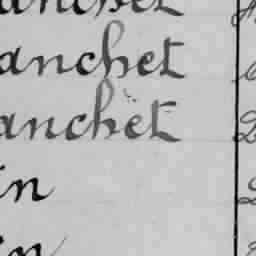 anchet
anchet
anchet
in
in